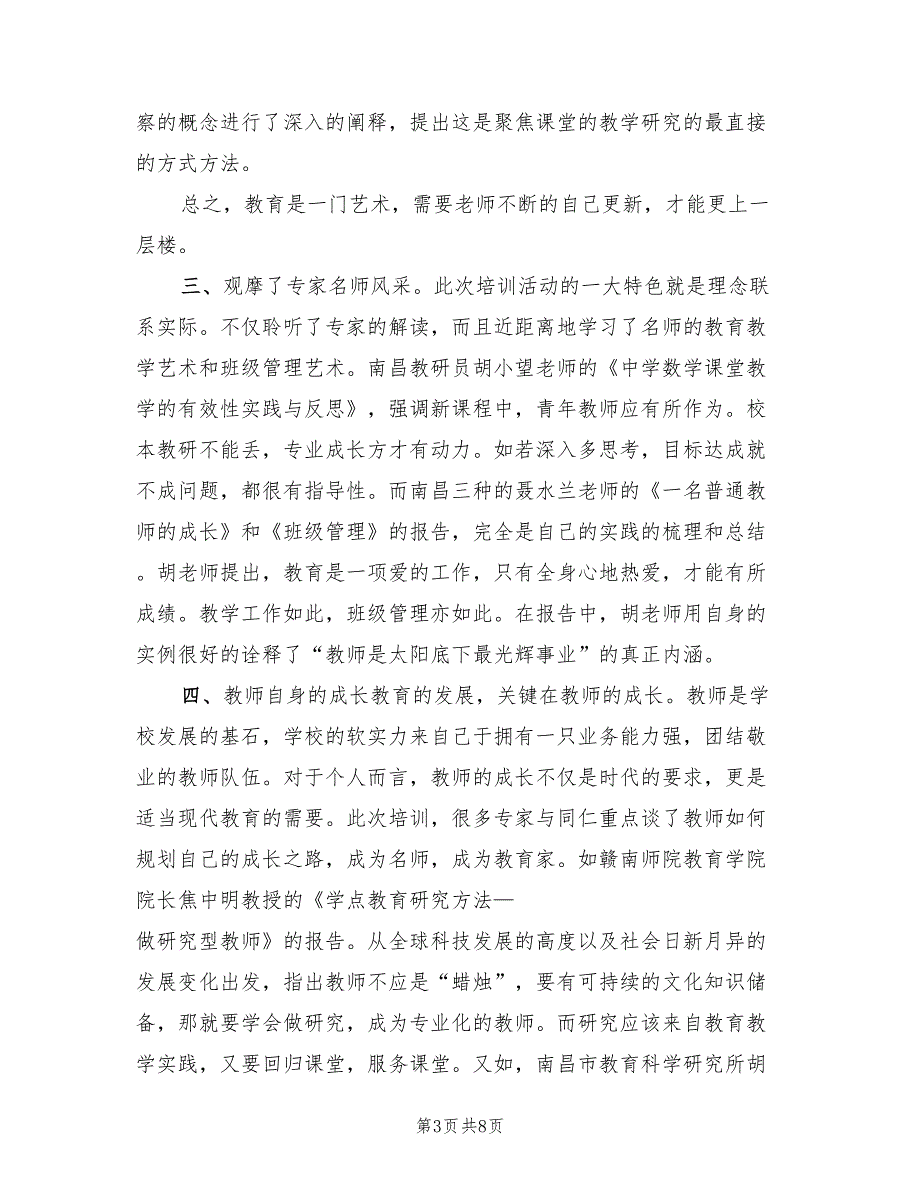 察的概念进行了深入的阐释，提出这是聚焦课堂的教学研究的最直接
的方式方法。
总之，教育是一门艺术，需要老师不断的自己更新，才能更上一
层楼。
三、观摩了专家名师风采。此次培训活动的一大特色就是理念联
系实际。不仅聆听了专家的解读，而且近距离地学习了名师的教育教
学艺术和班级管理艺术。南昌教研员胡小望老师的《中学数学课堂教
学的有效性实践与反思》，强调新课程中，青年教师应有所作为。校
本教研不能丢，专业成长方才有动力。如若深入多思考，目标达成就
不成问题，都很有指导性。而南昌三种的聂水兰老师的《一名普通教
师的成长》和《班级管理》的报告，完全是自己的实践的梳理和总结
。胡老师提出，教育是一项爱的工作，只有全身心地热爱，才能有所
成绩。教学工作如此，班级管理亦如此。在报告中，胡老师用自身的
实例很好的诠释了“教师是太阳底下最光辉事业”的真正内涵。
四、教师自身的成长教育的发展，关键在教师的成长。教师是学
校发展的基石，学校的软实力来自己于拥有一只业务能力强，团结敬
业的教师队伍。对于个人而言，教师的成长不仅是时代的要求，更是
适当现代教育的需要。此次培训，很多专家与同仁重点谈了教师如何
规划自己的成长之路，成为名师，成为教育家。如赣南师院教育学院
院长焦中明教授的《学点教育研究方法—
做研究型教师》的报告。从全球科技发展的高度以及社会日新月异的
发展变化出发，指出教师不应是“蜡烛”，要有可持续的文化知识储
备，那就要学会做研究，成为专业化的教师。而研究应该来自教育教
学实践，又要回归课堂，服务课堂。又如，南昌市教育科学研究所胡
第3页共8页